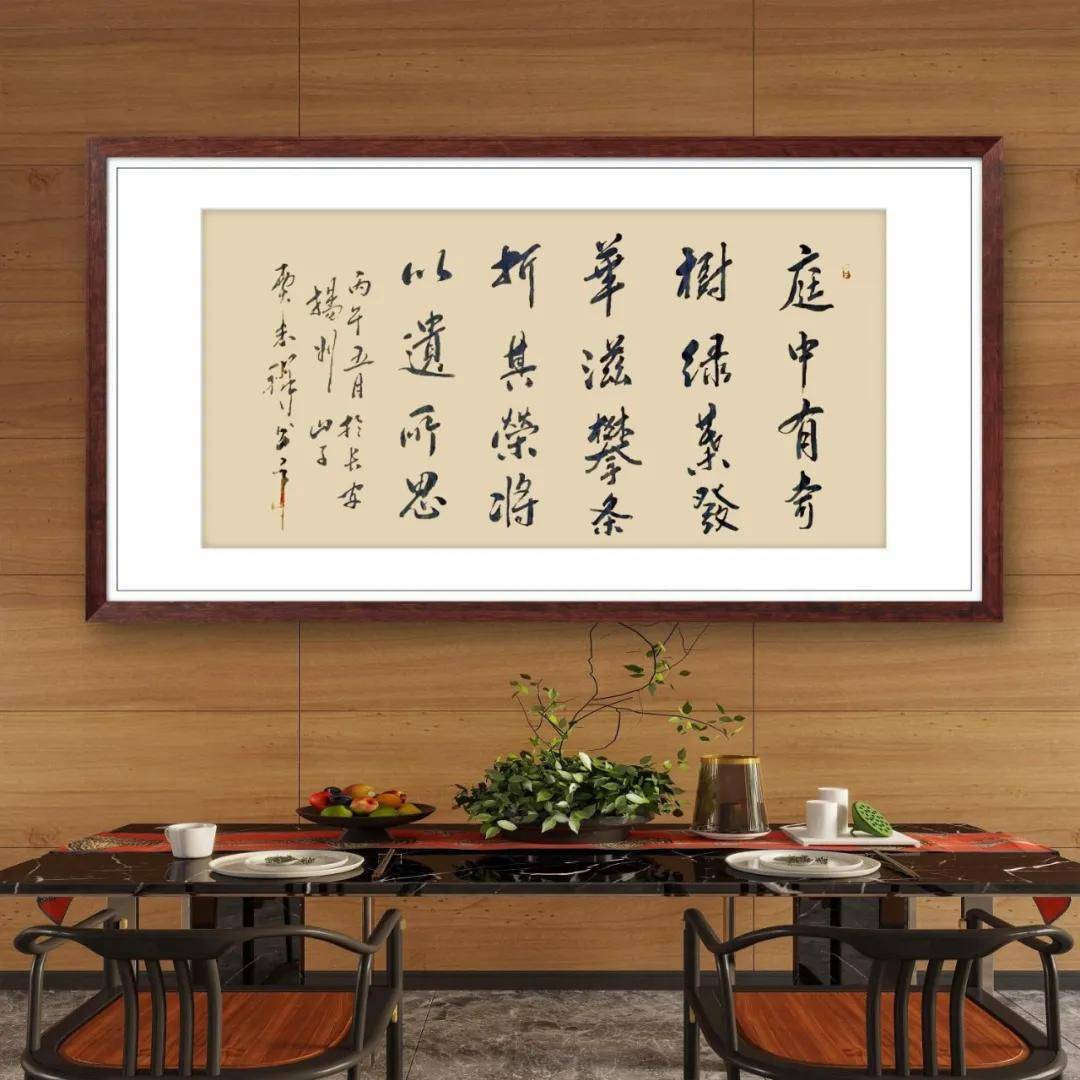 庭中有奇
樹绿葉發
華滋攀条
折其榮將
以遺所思
丙午五月於长安
楊州山子